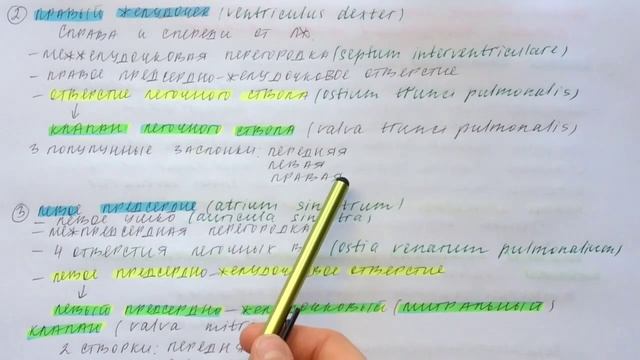 ② ПРАВЫЙ ЖЕЛУДОЧЕК (ventriculus dexter)
СПРАВА И СПЕРЕДИ ОТ ЛЖ
- МЕЖЖЕЛУДОЧКОВАЯ ПЕРЕГОРОДКА (septum interventriculare)
- ПРАВОЕ ПРЕДСЕРДНО-ЖЕЛУДОЧКОВОЕ ОТВЕРСТИЕ
- ОТВЕРСТИЕ ЛЕГОЧНОГО СТВОЛА (ostium trunci pulmonalis)
↓
КЛАПАН ЛЕГОЧНОГО СТВОЛА (valva trunci pulmonalis)
3 ПОЛУЛУННЫЕ ЗАСЛОНКИ: ПЕРЕДНЯЯ
ЛЕВАЯ
ПРАВАЯ
③ ЛЕВОЕ ПРЕДСЕРДИЕ (atrium sinistrum)
- ЛЕВОЕ УШКО (auricula sinistra)
- МЕЖПРЕДСЕРДНАЯ ПЕРЕГОРОДКА
- 4 ОТВЕРСТИЯ ЛЕГОЧНЫХ В (ostia venarum pulmonalium)
- ЛЕВОЕ ПРЕДСЕРДНО-ЖЕЛУДОЧКОВОЕ ОТВЕРСТИЕ
↓
ЛЕВЫЙ ПРЕДСЕРДНО-ЖЕЛУДОЧКОВЫЙ (МИТРАЛЬНЫЙ)
КЛАПАН (valva mitr
2 СТВОРКИ: ПЕРЕДНЯ